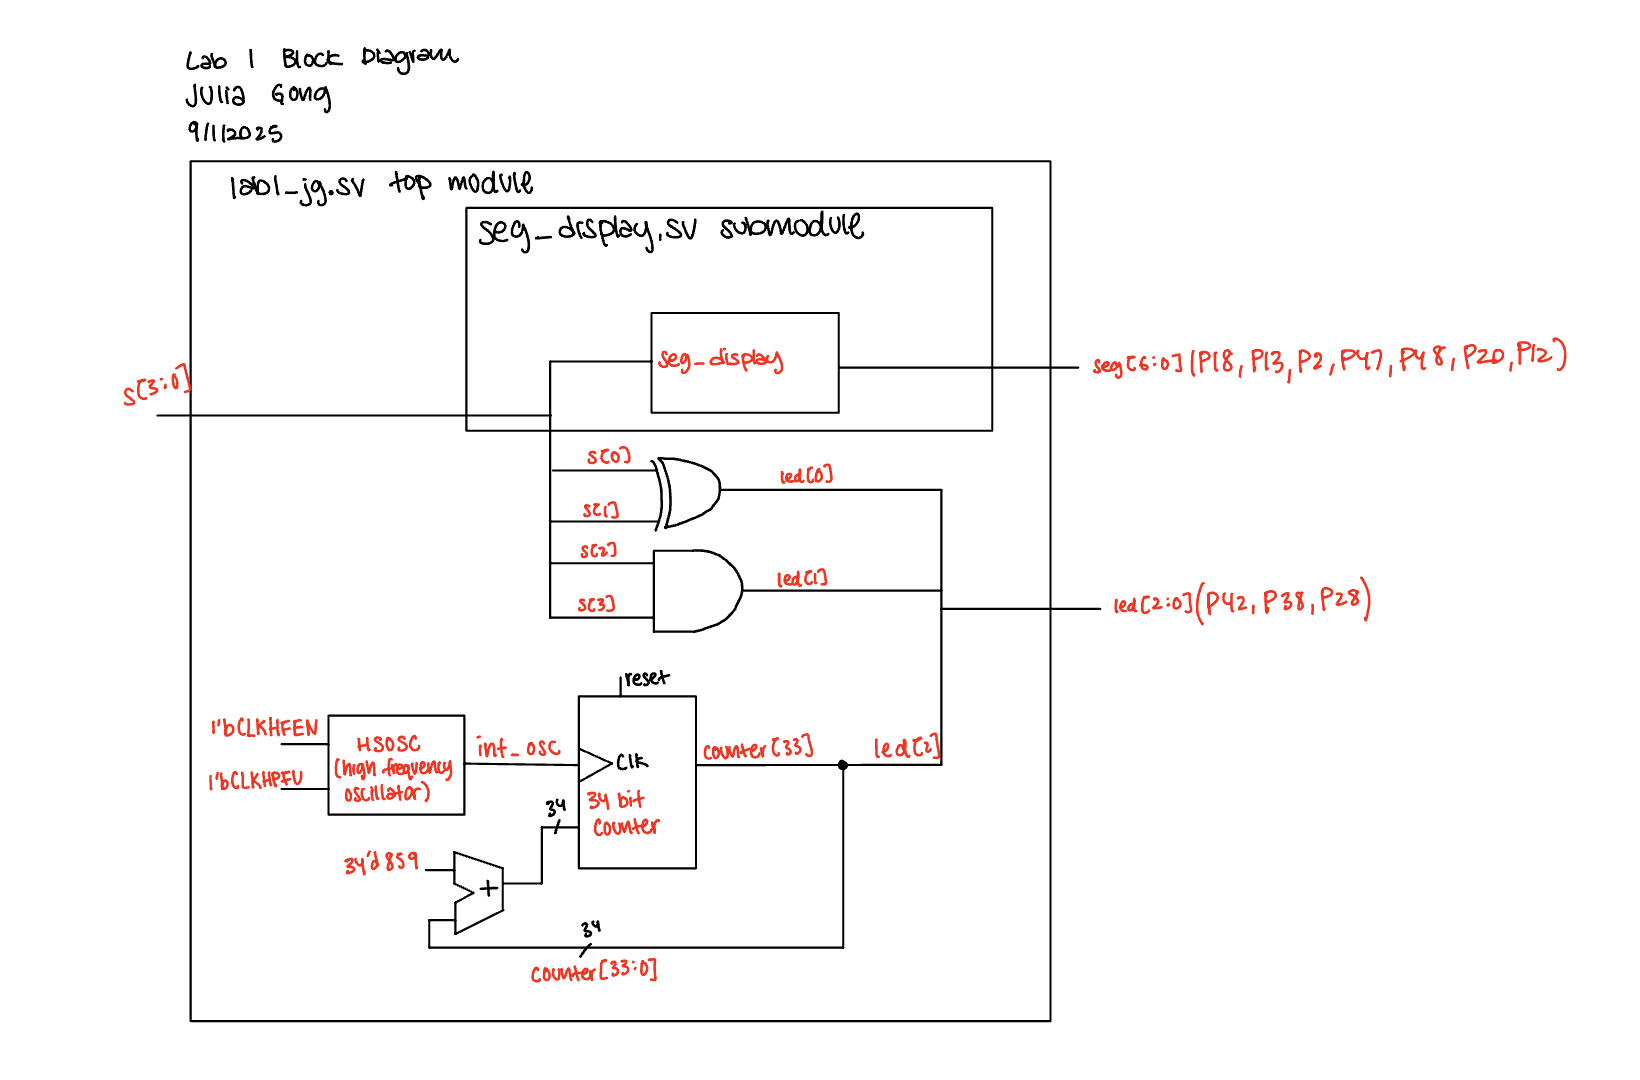 Lab 1 Block Diagram
Julia Gong
9/1/2025
lab1_jg.sv top module
seg_display.sv submodule
seg_display
s[3:0]
seg[6:0](P18, P13, P2, P47, P48, P20, P12)
s[0]
led[0]
s[1]
s[2]
led[1]
s[3]
led[2:0](P42, P38, P28)
reset
1'bCLKHFEN
HSOSC
(high frequency
oscillator)
int_osc
Clk
counter[33]
led[2]
1'bCLKHPFU
34
34 bit
counter
34'd859
+
34
counter[33:0]